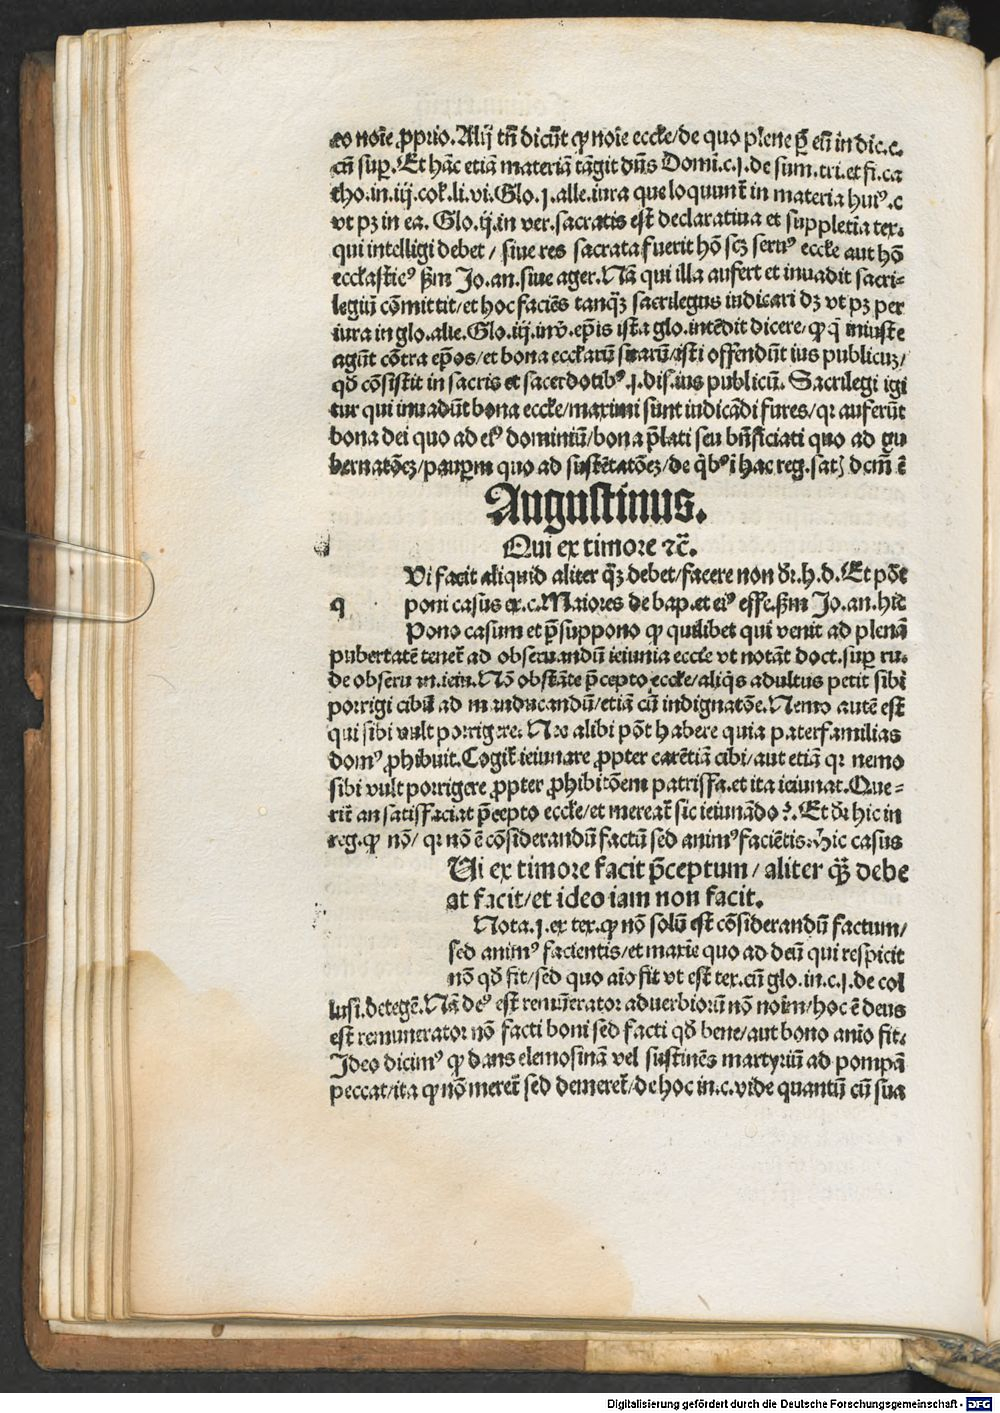 eo noīe ꝓprio. Alij tn̄ dicūt ꝙ noīe eccl̄e/de quo plene ꝑ eū in dic.c.
cū suꝑ. Et hāc etiā materiā tāgit dn̄s Domi.c.j.de sum.tri.et fi.ca
tho.in.iij.col̄.li.vi. Glo.j.alle.iura que loquunt̄ in materia huiꝰ.c
vt pꝫ in ea. Glo.ij.in ver.sacratis est declaratiua et suppletiua tex.
qui intelligi debet / siue res sacrata fuerit hō scꝫ seruꝰ eccl̄e aut hō
eccl̄asticꝰ ẜm Jo.an.siue ager. Nā qui illa aufert et inuadit sacri-
legiū cōmittit/et hoc faciēs tanq̄ꝫ sacrilegus iudicari dꝫ vt pꝫ per
iura in glo.alle. Glo.iij.in v̄.ep̄is ista glo.intēdit dicere/ꝙ q̄ iniuste
agūt cōtra ep̄os/et bona eccl̄arū suarū/isti offendūt ius publicuꝫ/
qd̄ cōsistit in sacris et sacerdotibꝰ.j.dis.ius publicū. Sacrilegi igi
tur qui inuadūt bona eccl̄e/maximi sunt iudicādi fures/qꝛ auferūt
bona dei quo ad eiꝰ dominiū/bona p̄lati seu bn̄ficiati quo ad gu
bernatōeꝫ/pauꝑm quo ad sustētatōeꝫ/de q̄bꝰ ī hac reg.satꝫ dcm̄ ē
Augustinus.
Qui ex timore ⁊c̄.
Vi facit aliquid aliter q̄ꝫ debet/facere non dr̄.h.d. Et pōt
q poni casus ex.c. Maiores de bap.et eiꝰ effe.ẜm Jo.an.hic
Pono casum et p̄suppono ꝙ quilibet qui venit ad plenā
pubertatē tenet̄ ad obseruandū ieiunia eccl̄e vt notāt doct.suꝑ ru.
de obseru.in.ieiu. Nō obstāte p̄cepto eccl̄e/aliq̄s adultus petit sibi
porrigi cibū ad manducandū/etiā cū indignatōe. Nemo autē est
qui sibi vult porrigere. Nec alibi pōt habere quia paterfamilias
domꝰ ꝓhibuit. Cogit̄ ieiunare ꝓpter carētiā cibi/aut etiā qꝛ nemo
sibi vult porrigere ꝓpter ꝓhibitōem patrisfa.et ita ieiunat. Que-
rit̄ an satisfaciat p̄cepto eccl̄e/et mereat̄ sic ieiunādo?. Et dr̄ hic in
reg.ꝙ nō/ qꝛ nō ē cōsiderandū factū sed animꝰ faciētis. Hic casus
Ui ex timore facit p̄ceptum/aliter q̄ꝫ debe
at facit/et ideo iam non facit.
Nota.j.ex tex.ꝙ nō solū est cōsiderandū factum/
sed animꝰ facientis/et maxīe quo ad deū qui respicit
nō qd̄ fit/sed quo aīo fit vt est tex.cū glo.in.c.j.de col
lusi.detegē. Nā deꝰ est remūerator aduerbiorū nō noīm/hoc ē deus
est remunerator nō facti boni sed facti qd̄ bene/aut bono anīo fit.
Ideo dicimꝰ ꝙ dans elemosinā vel sustinēs martyriū ad pompā
peccat/ita ꝙ nō meret̄ sed demeret̄/de hoc in.c.vide quantū cū sua
Digitalisierung gefördert durch die Deutsche Forschungsgemeinschaft - DFG